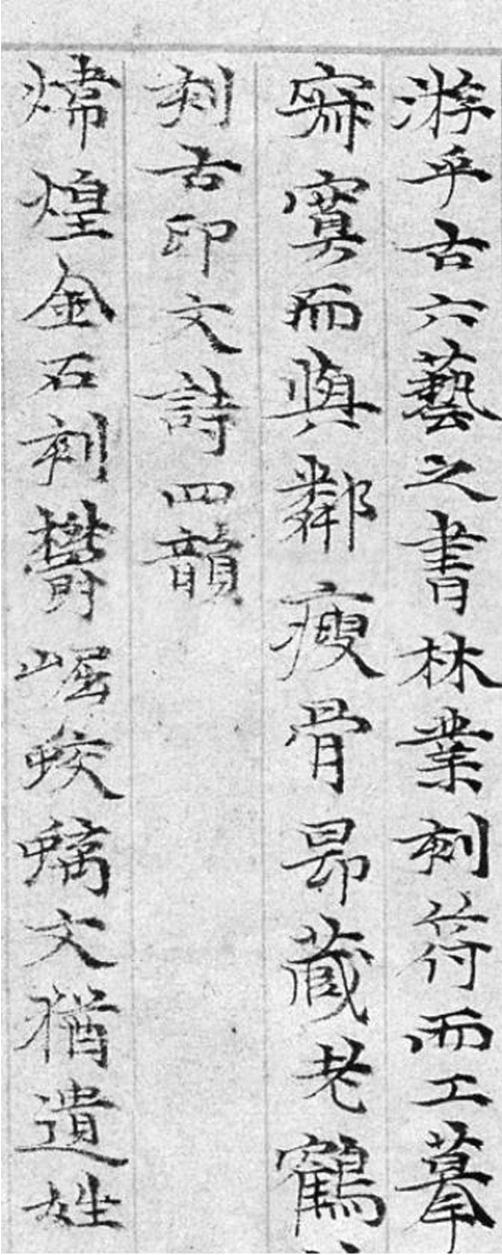 游乎古六藝之書林業刻符而工摹
寂寞而與鄰瘦骨昴藏老鶴
刻古印文詩四韻
煒煌金石刻鬱崛蛟螭文猶遺姓